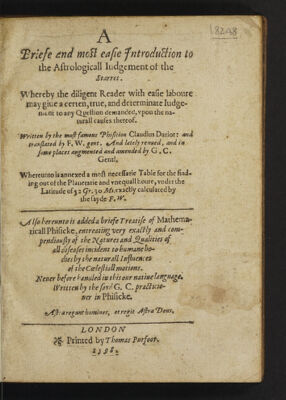 A
Briefe and most easie Introduction to
the Astrologicall Iudgement of the
Starres.
Whereby the diligent Reader with easie laboure
may giue a certen, true, and determinate Iudge-
ment to any Question demanded, vpon the na-
turall causes thereof.
Written by the most famous Phisition Claudius Dariot: and
translated by F. W. gent. And lately renued, and in
some places augmented and amended by G. C.
Gentl.
Whereunto is annexed a most necessarie Table for the find-
ing out of the Planetarie and vnequall houre, vnder the
Latitude of 52 Gr. 30 Mi. exactly calculated by
the sayde F. W.
Also hereunto is added a briefe Treatise of Mathema-
ticall Phisicke, entreating very exactly and com-
pendiously of the Natures and Qualities of
all diseases incident to humane bo-
dies by the naturall Influences
of the Cœlestiall motions.
Neuer before handled in this our natiue language.
Written by the sayd G. C. practicio-
ner in Phisicke.
Astra regunt homines, et regit Astra Deus.
LONDON
Printed by Thomas Purfoot.
1598.